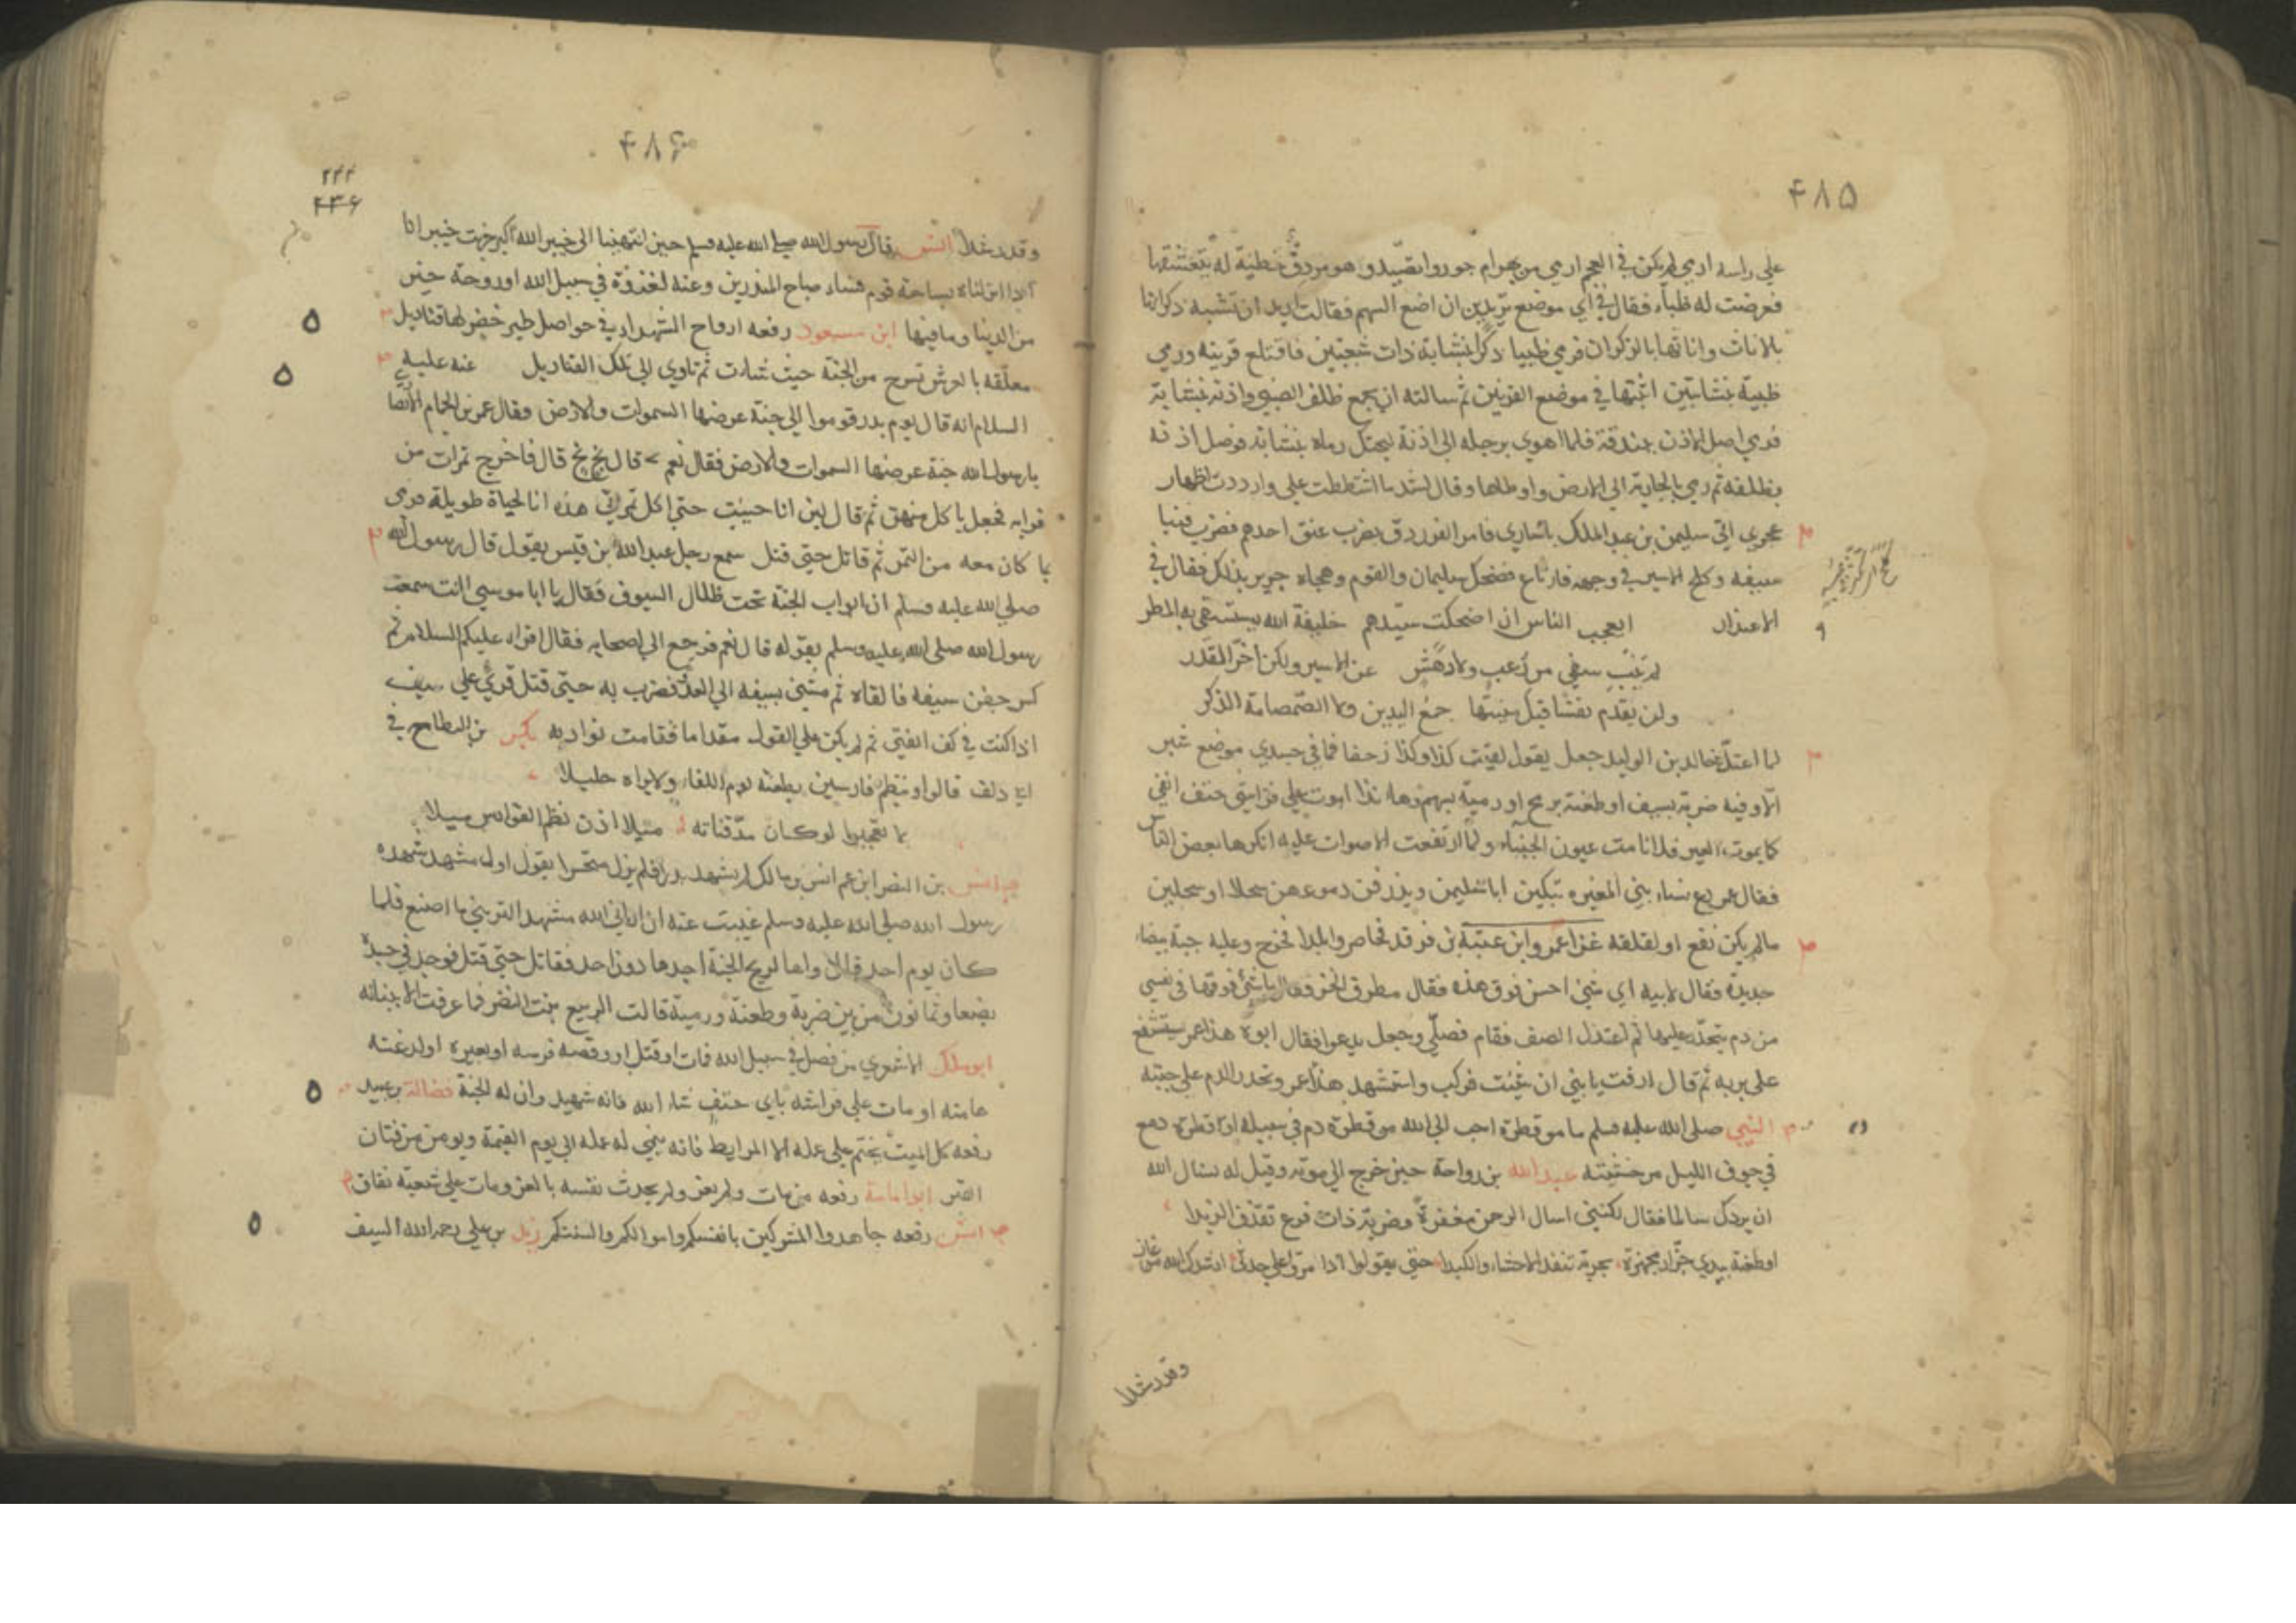 ۴۸۵
على راسه ارمى لم يكن في العجم ارمى من بهرام جور وانصيد و هو مردف خطية له يتعشقها
فعرضت له ظباء فقال في اي موضع تريدين ان اضع السهم فقالت اريد ان تشبه ذكرانها
بالاناث واناثها بالذكران فرمى ظبيا ذكرا بنشابة ذات شعبتين فاقتلع قرنيه ورمى
ظبية بنشابتين اثبتها في موضع القرنين ثم سالته ان يجمع ظلف الظبي واذنه بنشابة
فرمى اصل الاذن ببندقة فلما اهوى برجله الى اذنه ليحتك رماه بنشابة فوصل اذنه
بظلفه ثم رمى بالجارية الى الارض واوطاها وقال لشد ما اشتططت على واردت اظهار
عجزي اتى سليمن بن عبد الملك باسارى فامر الفرزدق بضرب عنق احدهم فضرب فنبا
سيفه وكلح الاسير في وجهه فارتاع فضحك سليمان والقوم وهجاه جرير بذلك فقال في
الاعتذار ايعجب الناس ان اضحكت سيدهم خليفة الله يستسقى به المطر
لم ينب سيفي من رعب ولا دهش عن الاسير ولكن اخر القدر
ولن يقدم نفسا قبل ميتتها جمع اليدين ولا الصمصامة الذكر
لما اعتل خالد بن الوليد جعل يقول لقيت كذا وكذا زحفا فما في جسدي موضع شبر
الا وفيه ضربة بسيف او طعنة برمح او رمية بسهم وها انا ذا اموت على فراشي حتف انفي
كما يموت العير فلا نامت عيون الجبناء ولما ارتفعت الاصوات عليه انكرها بعض الناس
فقال عمر دع نساء بني المغيره تبكين ابا سليمن ويذرفن دموعهن سجلا او سجلين
مالم يكن نقع او لقلقه غزا عمرو ابن عتبة بن فرقد فحاصر والبلدا فخرج وعليه جبة بيضاء
جديدة فقال لابيه اي شيء احسن فوق هذه فقال مطرف الخز فقال ما شئ فوقها في نفسي
من دم يتحدر عليها ثم اعتدل الصف فقام فصلى وجعل يدعوا فقال ابوه هذا عمرو يستشفع
على ربه ثم قال اركب يا بني ان شئت فركب واستشهد هذا عمرو وتحدر الدم على جبته
النبي صلى الله عليه وسلم ما من قطرة احب الى الله من قطرة دم في سبيله او قطرة دمع
في جوف الليل من خشيته عبد الله بن رواحة حين خرج الى موته وقيل له نسال الله
ان يردك سالما فقال لكنني اسال الرحمن مغفرة وضربة ذات فرع تقذف الزبدا
او طعنة بيدي حران مجهزة بحربة تنفذ الاحشاء والكبدا حتى يقولوا اذا مروا على جدثي ارشدك الله من غاز
وقد رشدا
۴۸۶
وقد رشدا انس قال رسول الله صلى الله عليه وسلم حين انتهينا الى خيبر الله اكبر خربت خيبر انا
اذا انزلنا بساحة قوم فساء صباح المنذرين وعنه لغزوة في سبيل الله او روحة خير
من الدنيا وما فيها ابن مسعود رفعه ارواح الشهداء في حواصل طير خضر لها قناديل
معلقه بالعرش تسرح من الجنة حيث شاءت ثم تاوى الى تلك القناديل عنه عليه
السلام انه قال يوم بدر قوموا الى جنة عرضها السموات والارض وقال عمير بن الحمام الانصا
يا رسول الله جنة عرضها السموات والارض فقال نعم قال بخ بخ قال فاخرج تمرات من
قرابه فجعل ياكل منهن ثم قال لئن انا حييت حتى اكل تمراتي هذه انها لحياة طويلة فرمى
بما كان معه من التمر ثم قاتل حتى قتل سمع رجل عبد الله بن قيس يقول قال رسول الله
صلى الله عليه وسلم ان ابواب الجنة تحت ظلال السيوف فقال يا ابا موسى انت سمعت
رسول الله صلى الله عليه وسلم يقوله قال نعم فرجع الى اصحابه فقال اقراء عليكم السلام ثم
كسر جفن سيفه فالقاه ثم مشى بسيفه الى العدو فضرب به حتى قتل قرئ على سيف
اذا كنت في كف الفتى ثم لم يكن على القول مقداما فقامت نوادبه بكر بن النطاح في
ابي دلف قالوا وينظم فارسين بطعنة يوم اللقاء ولا يراه جليلا
لا تعجبوا لو كان مد قناته ميلا اذن نظم الفوارس ميلا
انس بن النضر ابن عم انس بن مالك لم يشهد بدرا فلم يزل متحسرا يقول اول مشهد شهده
رسول الله صلى الله عليه وسلم غيبت عنه ان اراني الله مشهدا ليرين ما اصنع فلما
كان يوم احد قال واها لريح الجنة اجدها دون احد فقاتل حتى قتل فوجد في جسده
بضعا وثمانون من بين ضربة وطعنة ورمية قالت الربيع بنت النضر فما عرفت الا ببنانه
ابو ملك الاشعري من فصل في سبيل الله فمات او قتل او وقصه فرسه او بعيره او لدغته
هامته او مات على فراشه باي حتف شاء الله فانه شهيد وان له الجنة فضالة بن عبيد
رفعه كل الميت يختم على عمله الا المرابط فانه ينمى له عمله الى يوم القيمة ويومن من فتان
القبر ابو امامة رفعه من مات ولم يغز ولم يحدث نفسه بالغزو مات على شعبة نفاق
انس رفعه جاهدوا المشركين بانفسكم واموالكم والسنتكم زيد بن علي رحمه الله السيف